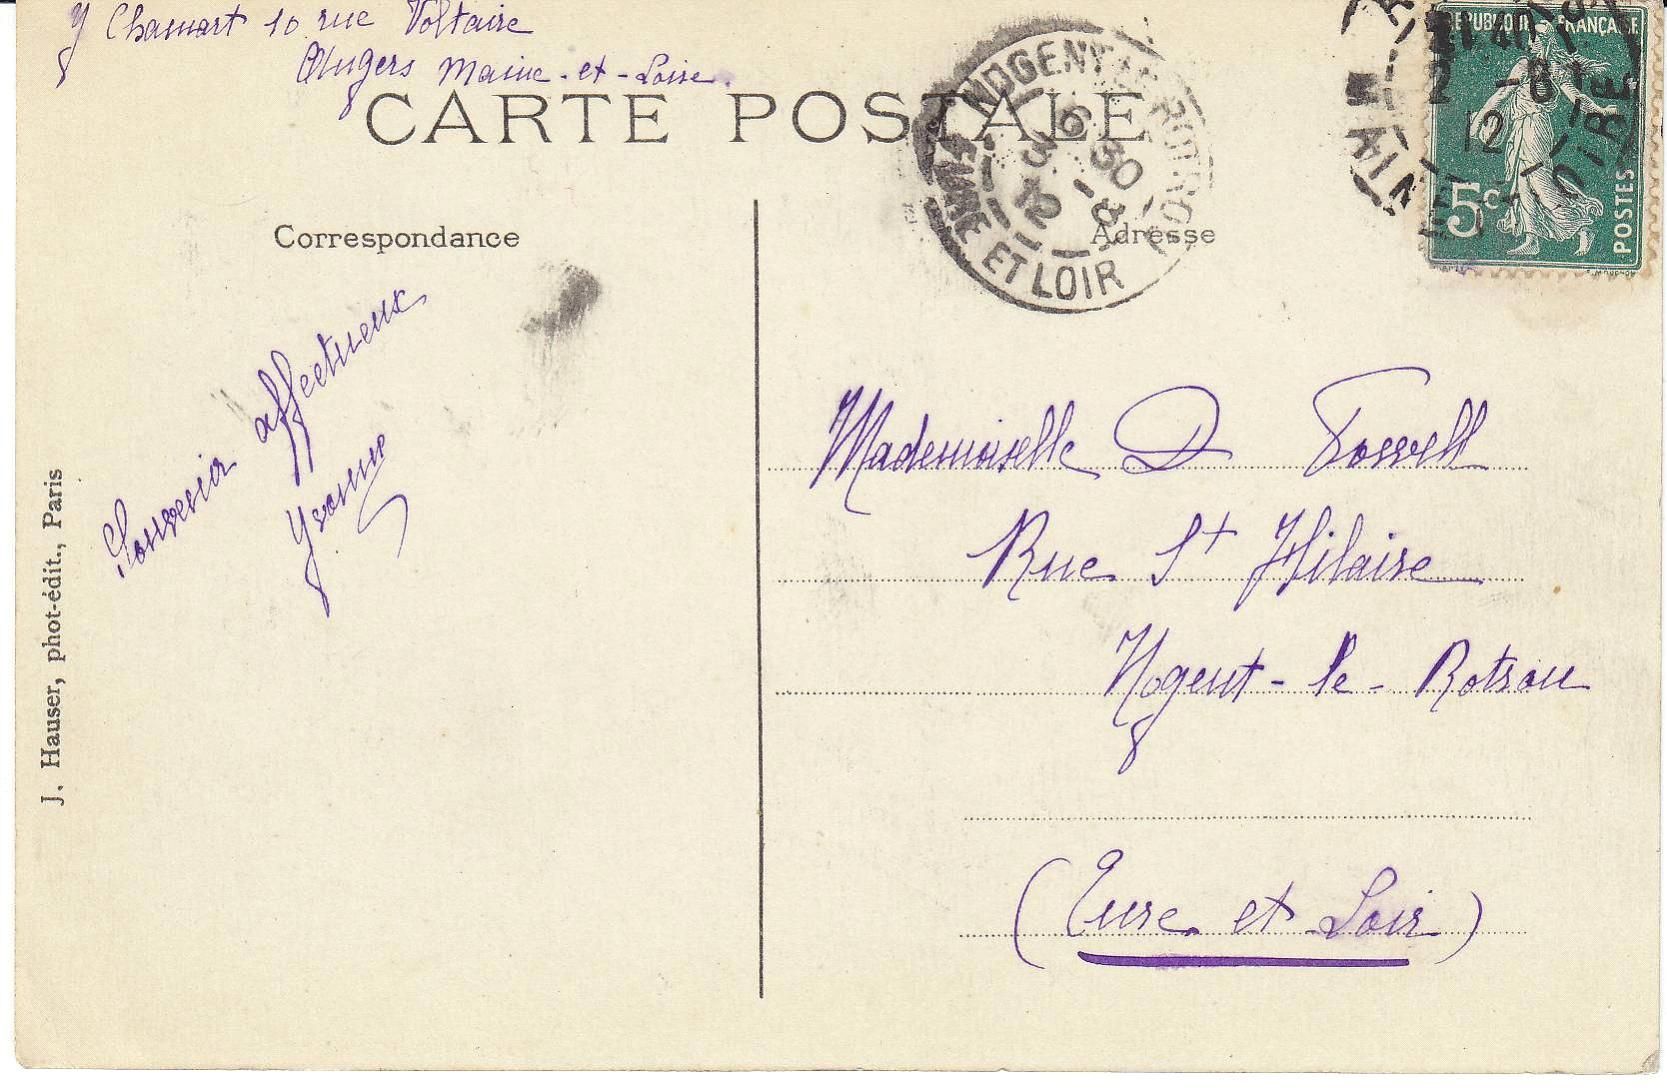 Y Chamart 10 rue Voltaire
Angers Maine-et-Loire
CARTE POSTALE
Correspondance
Adresse
NOGENT LE ROTROU
6 30
3 - 8
12
EURE ET LOIR
REPUBLIQUE FRANÇAISE
5c
POSTES
2 - 8
12
Souvenir affectueux
Yvonne
Mademoiselle D
Rue St Hilaire
Nogent-le-Rotrou
(Eure et Loir)
J. Hauser, phot-édit., Paris